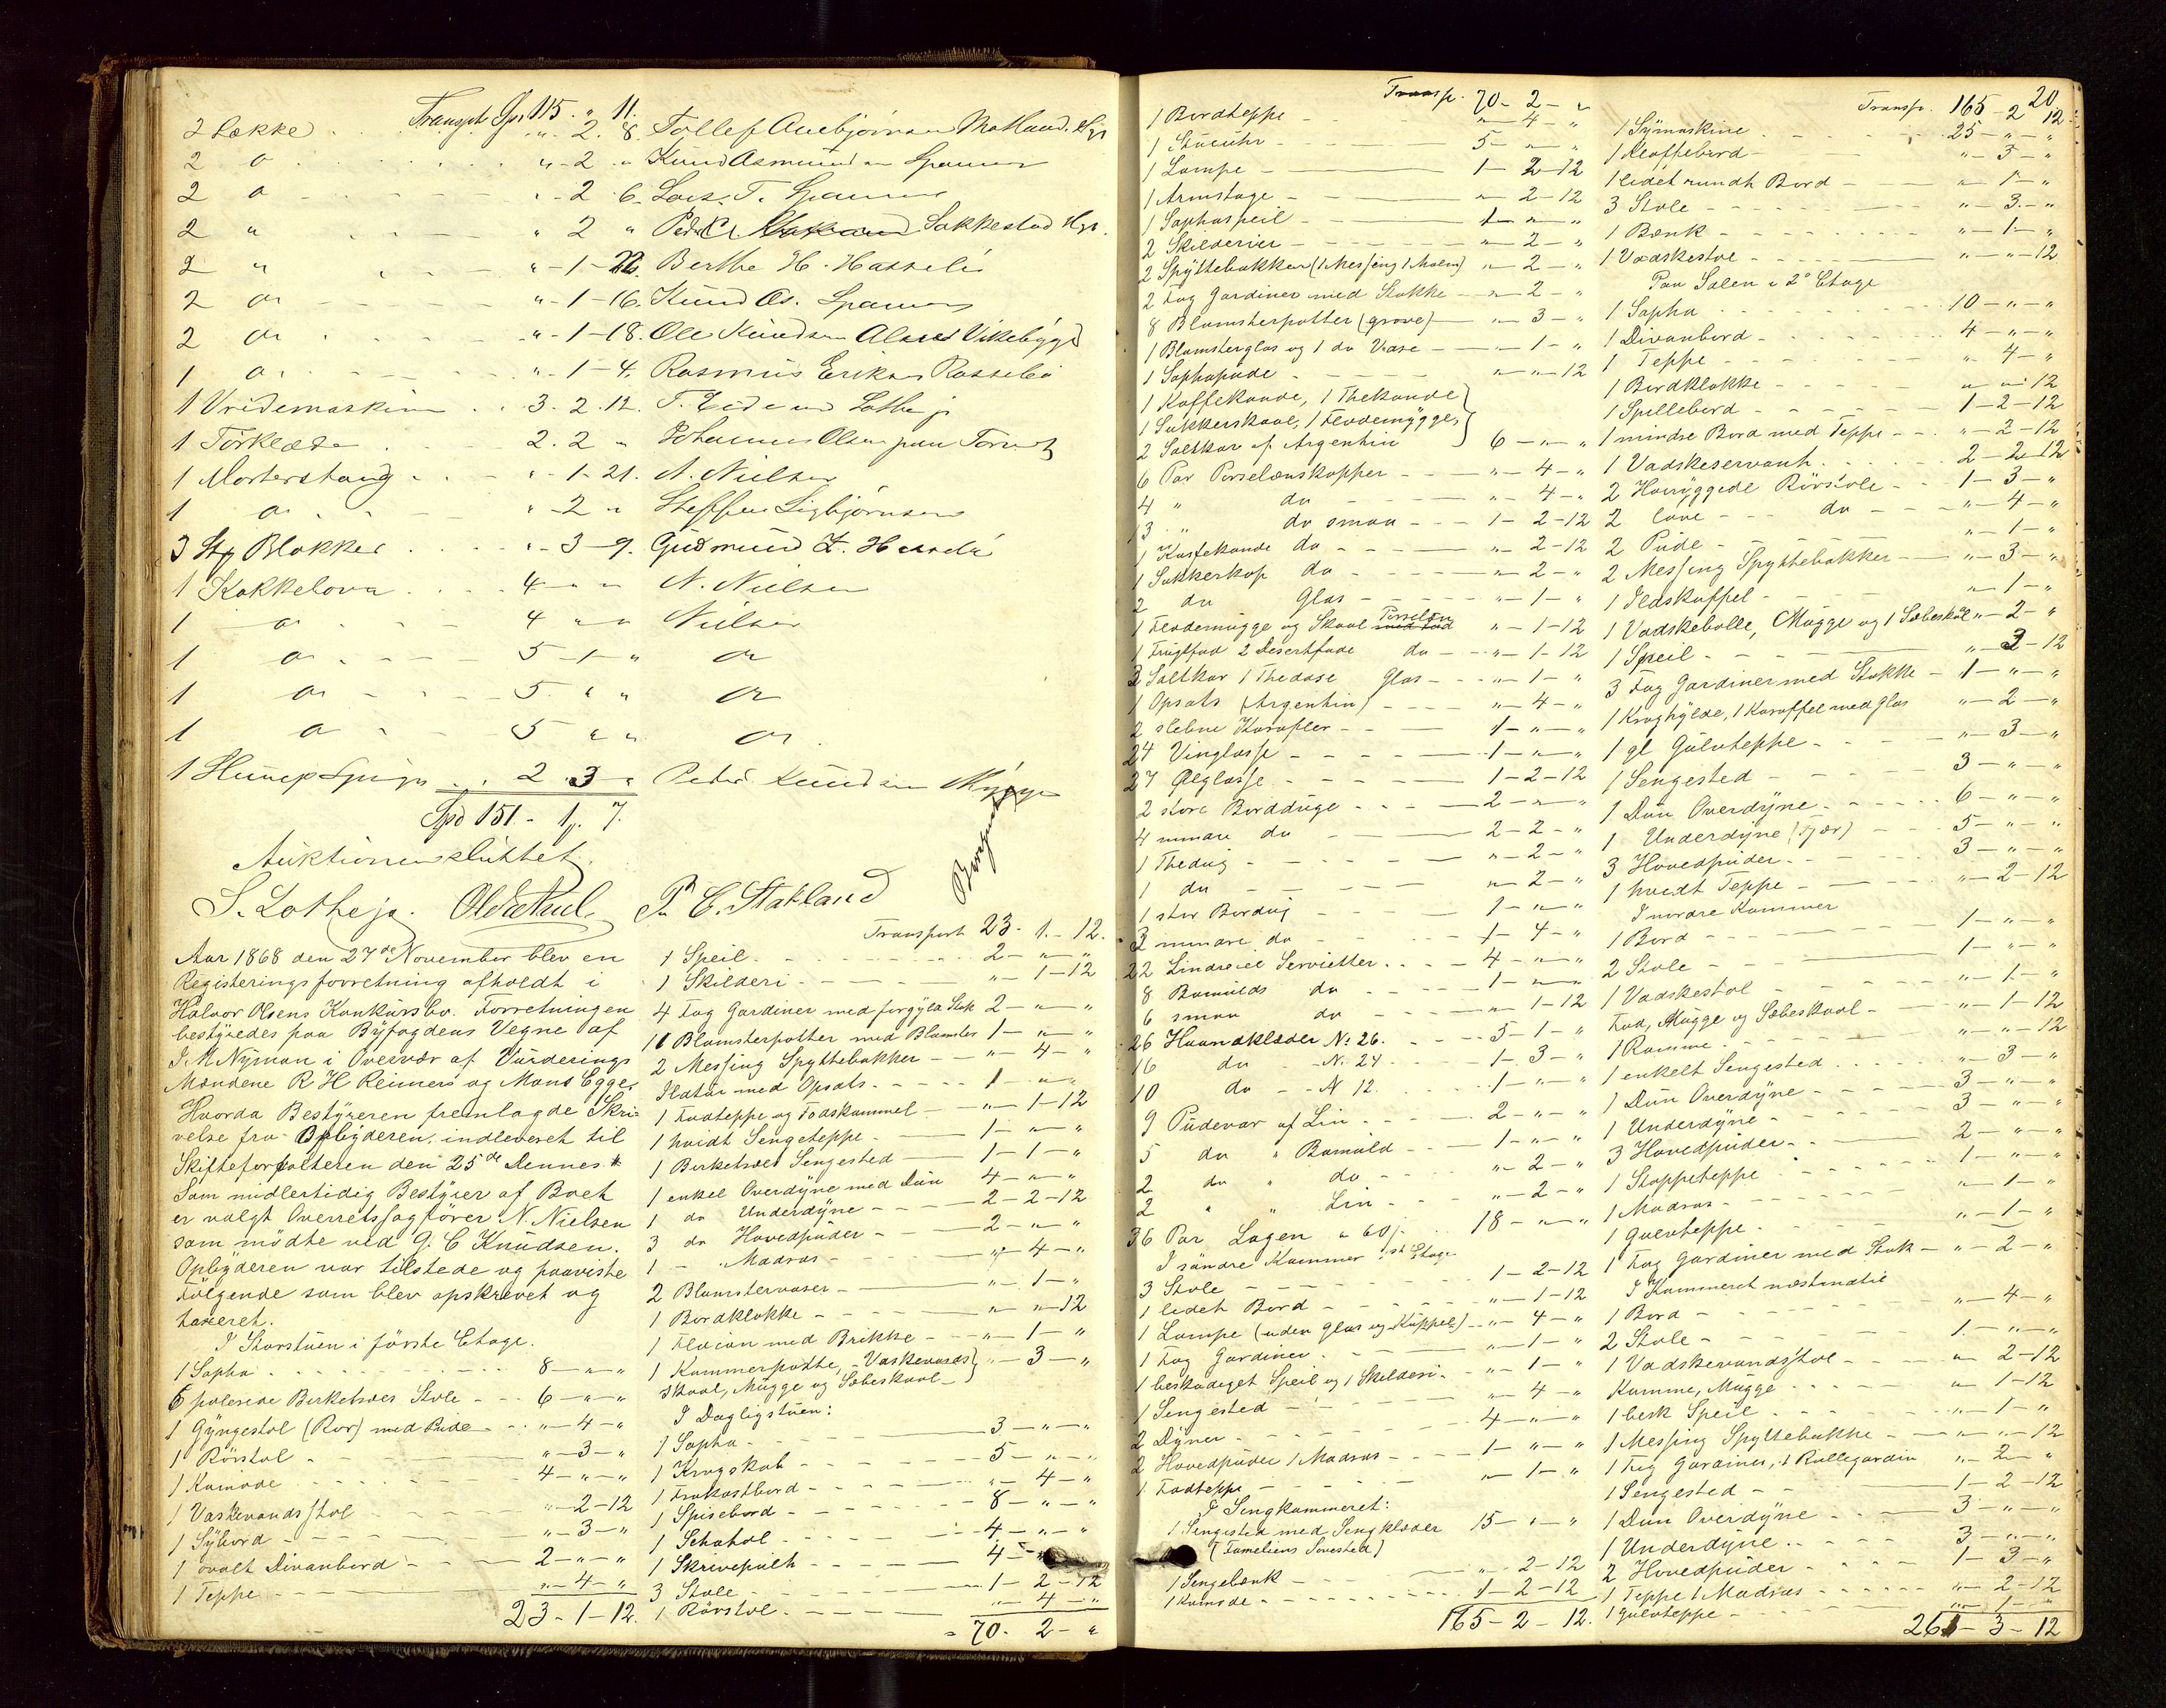 Transpt Spd 115 " 11.
2 Løkke " 2. 8. Tollef Auebjørnsen Matland. Hgs
2 do " - 2 " Knud Asmundsen Spanne
2 do " - 2 - 6. Lars. T. Spanne
2 " " 2 " Peder C. Sakkestad Hgs.
2 " " - 1 - 22. Berthe H. Hasseløe
2 do " - 1 - 16. Knud As. Spanne
2 do " - 1 - 18. Ole Knudsen Vikebygd
1 do " - 1 - 4. Rasmus Eriksen Røssebø
1 Vridemaskine 3. 2. 12. T. Eide Lothe jr
1 Törklæde 2. 2 " Johannes Olsen
1 Mortérstang " - 1 - 21. N. Nielsen
1 do " - 2 " Steffen Sigbjørnsen
3 Stk Blokker " - 3 - 9. Gudmund
1 Kakkelovn 4 " " N. Nielsen
1 do 4 " " Nielsen
1 do 5 - 1 - " do
1 do 5. " " do
1 do 5 " " do
1 2. 3 " Peder Knudsen
Spd 151 - 1. 7.
Auktionen sluttet.
S. Lothe jr. P. C. Stakland
Aar 1868 den 27de November blev en
Registeringsforretning afholdt i
Halvor Olsens Konkursbo. Forretningen
bestyredes paa Byfogdens Vegne af
I. M Nyman i Overvær af Vurderings
Mændene R H Reiners og Mons Egge.
Hvorda Bestyreren fremlagde Skri-
velse fra Opbyderen indleveret til
Skifteforvalteren den 25de Dennes.
Som midlertidig Bestyrer af Boet
er valgt Overretssagfører N. Nielsen
som mödte ved G. C Knudsen.
Opbyderen var tilstede og paaviste
Følgende som blev opskrevet og
taxeret.
I Storstuen i første Etage.
1 Sopha 8 - " - "
6 polerede Birketræes Stole 6 - " - "
1 Gyngestol (Rør) med Pude " - 4 - "
1 Rörstol " - 3 - "
1 Komode 4 - " - "
1 Vaskevandsstol " - 2 - 12
1 Sybord " - 3 - "
1 ovalt Divanbord 2 - " - "
1 Teppe " - 4 - "
23 - 1 - 12.
Transport 23 - 1. - 12.
1 Speil 2 - " - "
1 Skilderi " - 1 - 12
4 Fag Gardiner med forgyldt Stok 2 - " - "
11 Blomsterpotter med Blomster 1 - " - "
2 Messing Spyttebakker " - 4 - "
Ildtøi med Opsats 1 - " - "
1 Fodteppe og Fodskammel " - 1 - 12
1 hvidt Sengeteppe 1 - " - "
1 Birketræes Sengested 1 - 1 - "
1 enkel Overdyne med Dun 4 - " - "
1 do Underdyne 2 - 2 - 12
3 do Hovedpuder 2 - " - "
1 - Madras " - 4 - "
2 Blomstervaser " - 1 - "
1 Bordklokke " - " - 12
1 Flacon med Brikke " - 1 - "
1 Kammerpotte, Vaskevands} " - 3 - "
skaal, Mugge og Sæbeskaal
I Dagligstuen:
1 Sopha 3 - " - "
1 Krogskab 5 - " - "
1 Frokostbord " - 4 - "
1 Spisebord 8 - " - "
1 Schatol 4 - " - "
1 Skrivepult 4 - " - "
3 Stole 1 - 2 - 12
1 Rörstol " - 4 - "
70 - 2 - "
Transp. 70 - 2 - "
1 Bordteppe " - 4 - "
1 Stueuhr 5 - " - "
1 Lampe 1 - 2 - 12
1 Armstage " - 2 - 12
1 Sophaspeil 1 - " - "
2 Skilderier " - 2 - "
2 Spyttebakker (1 Messing 1 Malm) " - 2 - "
2 Fag Gardiner med Stokke " - 2 - "
8 Blomsterpotter (grove) " - 3 - "
1 Blomsterglas og 1 do Vase " - 1 - "
1 Sophapude " - " - 12
1 Kaffekande, 1 Thekande
1 Sukkerskaal, 1 Flødemugge,
2 Saltkar af Argentin 6 - " - "
6 Par Porselænskopper " - 4 - "
4 " do " - 4 - "
13 " do smaa 1 - 2 - 12
1 Kaffekande do " - 2 - 12
1 Sukkerkop do " - 2 - "
2 do Glas " - 1 - "
1 Flødemugge og Skaal Porselæn " - 1 - 12
1 Frugtfad 2 Desertfade do " - 1 - 12
3 Saltkar 1 Thedase Glas " - 1 - "
1 Opsats (Argentin) " - 4 - "
2 slebne Karafler 1 - " - "
24 Vinglasse 1 - " - "
27 Ølglasse 1 - 2 - 12
2 store Borddüge 2 - " - "
4 mindre do 2 - 2 - "
1 Thedug " - 2 - "
1 do " - 2 - "
1 stor Bordug 1 - " - "
3 mindre do 1 - 4 - "
22 Lindreiel Servietter 4 - " - "
8 Bomulds do 1 - " - "
6 smaa do " - 1 - 12
26 Haandklæder No 26. 5 - 1 - "
16 do - No. 24 1 - 3 - "
10 do - N 12 1 - " - "
9 Pudevar af Lin 2 - " - "
5 do " Bomuld 1 - " - "
2 do " do " - 2 - "
2 " " Lin " - 2 - "
36 Par Lagen a 60 18 - " - "
I søndre Kammer 1st Etage
3 Stole 1 - 2 - 12
1 lidet Bord " - 1 - 12
1 Lampe (uden Glas og Kuppel) " - 4 - "
1 Fag Gardiner " - 1 - "
1 beskadiget Speil og 1 Skilderi " - 1 - "
1 Sengested " - 4 - "
2 Dyner 4 - " - "
2 Hovedpuder 1 Madras 1 - " - "
1 Fodteppe " - 1 - "
I Sengkammeret:
1 Sengested med Sengklæder 15 - " - "
(Fameliens Sovested)
1 Sengebænk " - 2 - 12
1 Komode 1 - 2 - 12
165 - 2 - 12.
20
Transp. 165 - 2 12
1 Symaskine 25 - " - "
1 Klaffebord " - 3 - "
1 lidet rundt Bord " - 1 - "
3 Stole " - 3 - "
1 Bænk " - 1 - "
1 Vadskestol " - " - 12
Paa Salen i 2den Etage
1 Sopha 10 - " - "
1 Divanbord 4 - " - "
1 Teppe " - 4 - "
1 Bordklokke " - " - 12
1 Spillebord 1 - 2 - 12
1 mindre Bord med Teppe " - 2 - 12
1 Vadskeservant 2 - 2 - 12
2 Høiryggede Rörstole 1 - 3 - "
2 lave do " - 4 - "
2 Pude " - 1 - "
2 Messing Spyttebakker " - 3 - "
1 Ildskuffel " - 1 - "
1 Vadskebolle, Mugge og 1 Sæbeskål " - 2 - "
1 Speil " - 3 - 12
3 Fag Gardiner med Stokke 1 - " - "
1 Kroghylde, 1 Karaffel med glas " - 2 - "
1 gl Gulvteppe " - 3 - "
1 Sengested 3 - " - "
1 Dun Overdyne 6 - " - "
1 Underdyne (Fjær) 5 - " - "
3 Hovedpuder 3 - " - "
1 hvidt Teppe " - 2 - 12
I nordre Kammer
1 Bord 1 - " - "
2 Stole 1 - " - "
1 Vadskestol " - 1 - "
Fad, Mugge og Sæbeskaal " - 1 - 12
1 Ramme " - " - 12
1 enkelt Sengested " - 3 - "
1 Dun Overdyne 3 - " - "
1 Underdyne 3 - " - "
3 Hovedpuder 2 - " - "
1 Stoppeteppe 1 - " - "
1 Madras " - 1 - "
1 Gulvteppe " - 1 - "
1 Fag Gardiner med Stok " - 2 - "
I Kammeret næstmedie
1 Bord " - 4 - "
2 Stole 1 - " - "
1 Vadskevandsstol " - 2 - 12
Kumme, Mugge " - 1 - 12
1 besk Speil " - 1 - "
1 Messing Spyttebakke " - " - 12
1 Fag Gardiner, 1 Rullegardin " - 2 - "
1 Sengested 1 - 2 - 12
1 Dun Overdyne 3 - " - "
1 Underdyne 3 - " - "
2 Hovedpuder 1 - 3 - "
1 Teppe 1 Madras " - 2 - 12
1 Gulvteppe " - 1 - "
261 - 3 - 12